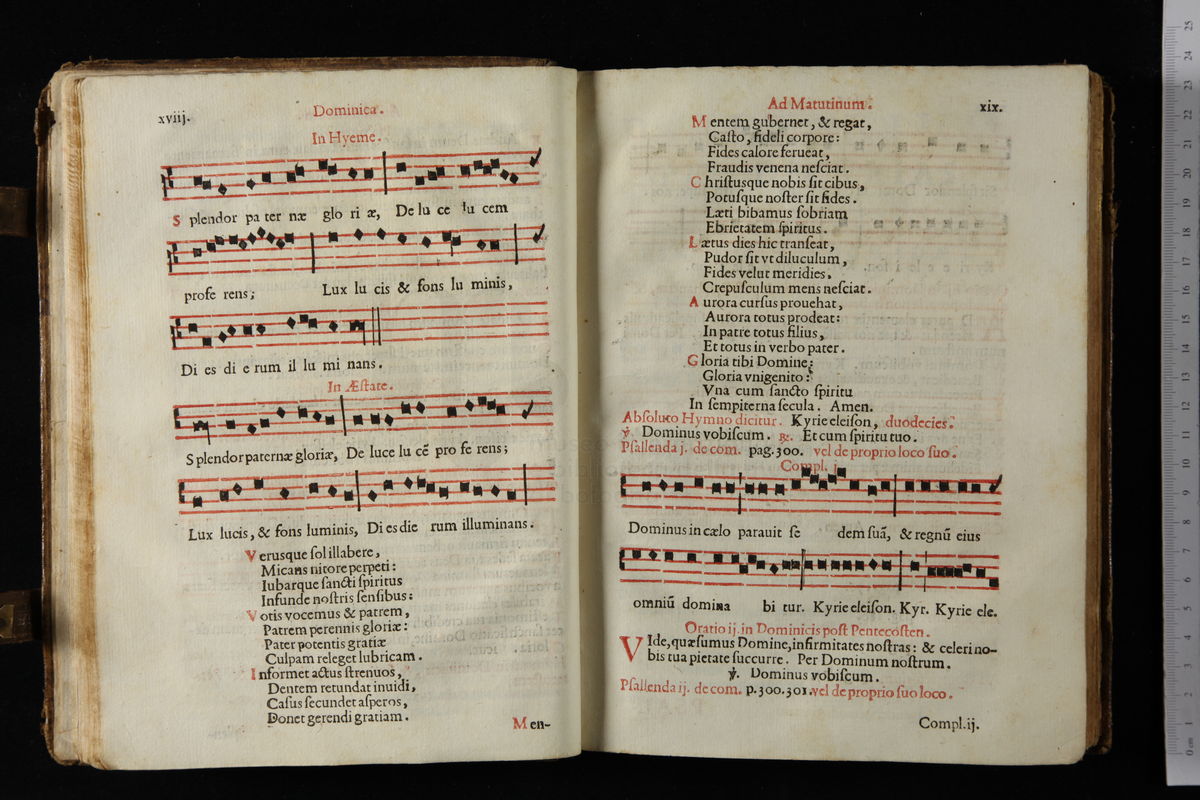 xviij.
Dominica.
In Hyeme.
S plendor pa ter næ glo ri æ, De lu ce lu cem
profe rens; Lux lu cis & fons lu minis,
Di es di e rum il lu mi nans.
In Æſtate.
S plendor paternæ gloriæ, De luce lu cē pro fe rens;
Lux lucis, & fons luminis, Di es die rum illuminans.
Verusque ſol illabere,
Micans nitore perpeti:
Iubarque ſancti ſpiritus
Infunde noſtris ſenſibus:
Votis vocemus & patrem,
Patrem perennis gloriæ:
Pater potentis gratiæ
Culpam releget lubricam.
Informet actus ſtrenuos,
Dentem retundat inuidi,
Caſus ſecundet aſperos,
Donet gerendi gratiam.
Men-
Ad Matutinum.
xix.
Mentem gubernet, & regat,
Caſto, fideli corpore:
Fides calore ferueat,
Fraudis venena neſciat.
Chriſtusque nobis ſit cibus,
Potuſque noſter ſit fides.
Læti bibamus ſobriam
Ebrietatem ſpiritus.
Lætus dies hic tranſeat,
Pudor ſit vt diluculum,
Fides velut meridies,
Crepuſculum mens neſciat.
Aurora curſus prouehat,
Aurora totus prodeat:
In patre totus filius,
Et totus in verbo pater.
Gloria tibi Domine;
Gloria vnigenito:
Vna cum ſancto ſpiritu
In ſempiterna ſecula. Amen.
Abſoluto Hymno dicitur. Kyrie eleiſon, duodecies.
℣. Dominus vobiſcum. ℞. Et cum ſpiritu tuo.
Pſallenda j. de com. pag. 300. vel de proprio loco ſuo.
Compl. j.
Dominus in cælo parauit ſe dem ſuā, & regnū eius
omniū domina bi tur. Kyrie eleiſon. Kyr. Kyrie ele.
Oratio ij. in Dominicis poſt Pentecoſten.
VIde, quæſumus Domine, infirmitates noſtras: & celeri no-
bis tua pietate ſuccurre. Per Dominum noſtrum.
℣. Dominus vobiſcum.
Pſallenda ij. de com. p. 300. 301. vel de proprio ſuo loco.
Compl. ij.